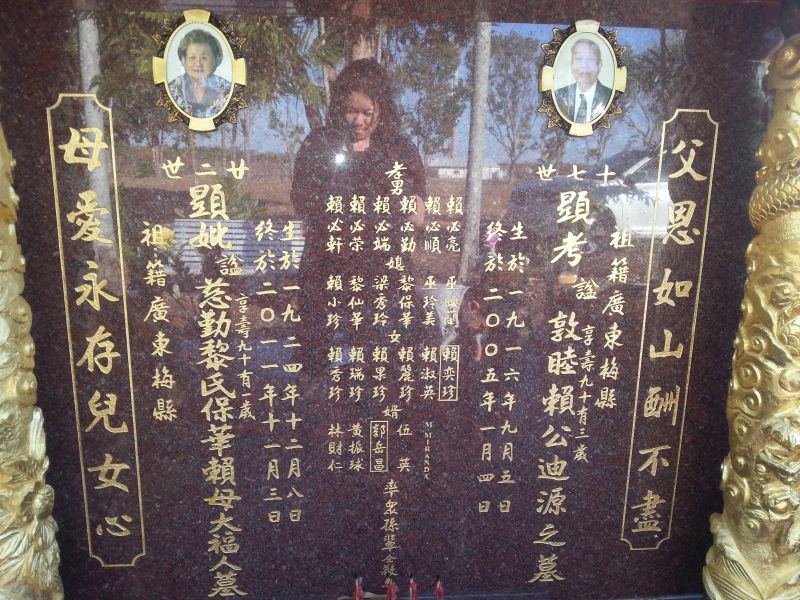 父恩如山酬不盡
祖籍廣東梅縣
十七世
顯考諡敦睦賴公迪源之墓
享壽九十有三歲
生於一九一六年九月五日
終於二00五年一月四日
孝男
賴必亮
賴必順
賴必勤
賴必端
賴必榮
賴必軒
媳
巫
巫玲美
黎保華
梁秀玲
黎仙華
賴小珍
女
賴奕珍
賴淑英
賴麗珍
賴果珍
賴瑞珍
賴秀珍
婿
M MIRANDA
伍英
郭岳昌
黃振球
林財仁
率眾孫輩仝
生於一九二四年十二月八日
終於二0一一年十一月三日
廿二世
顯妣諡慈勤黎氏保華賴母大福人墓
享壽九十有一歲
祖籍廣東梅縣
母愛永存兒女心